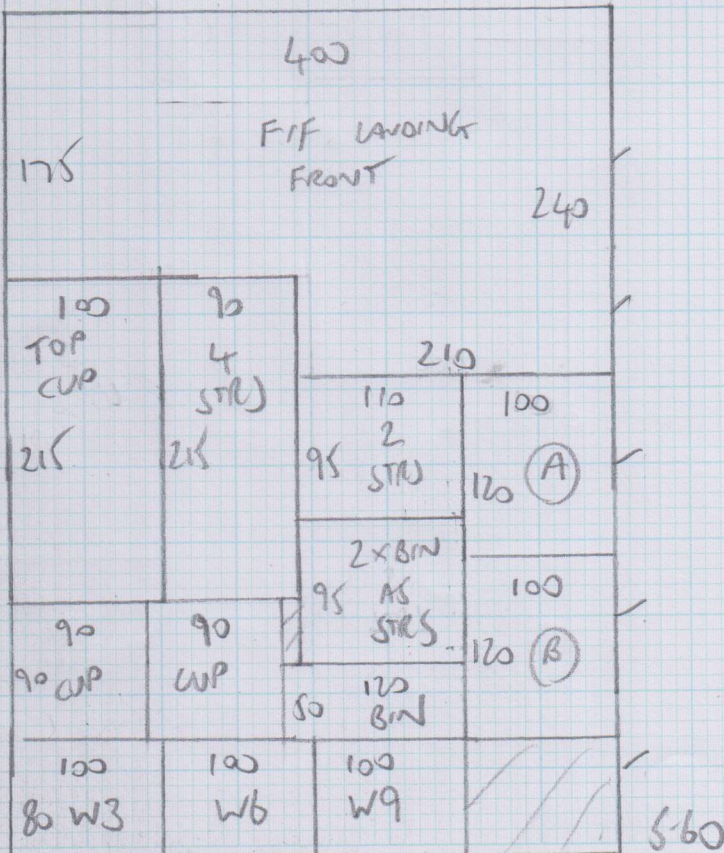 400
F/F LANDING
FRONT
175
240
100
TOP
CUP
215
90
4
STRS
215
210
110
2
STRS
95
100
120 A
2xBIN
AS
STRS
95
100
120 B
90
90 CUP
90
CUP
120
50 BIN
100
80 W3
100
W6
100
W9
5.60